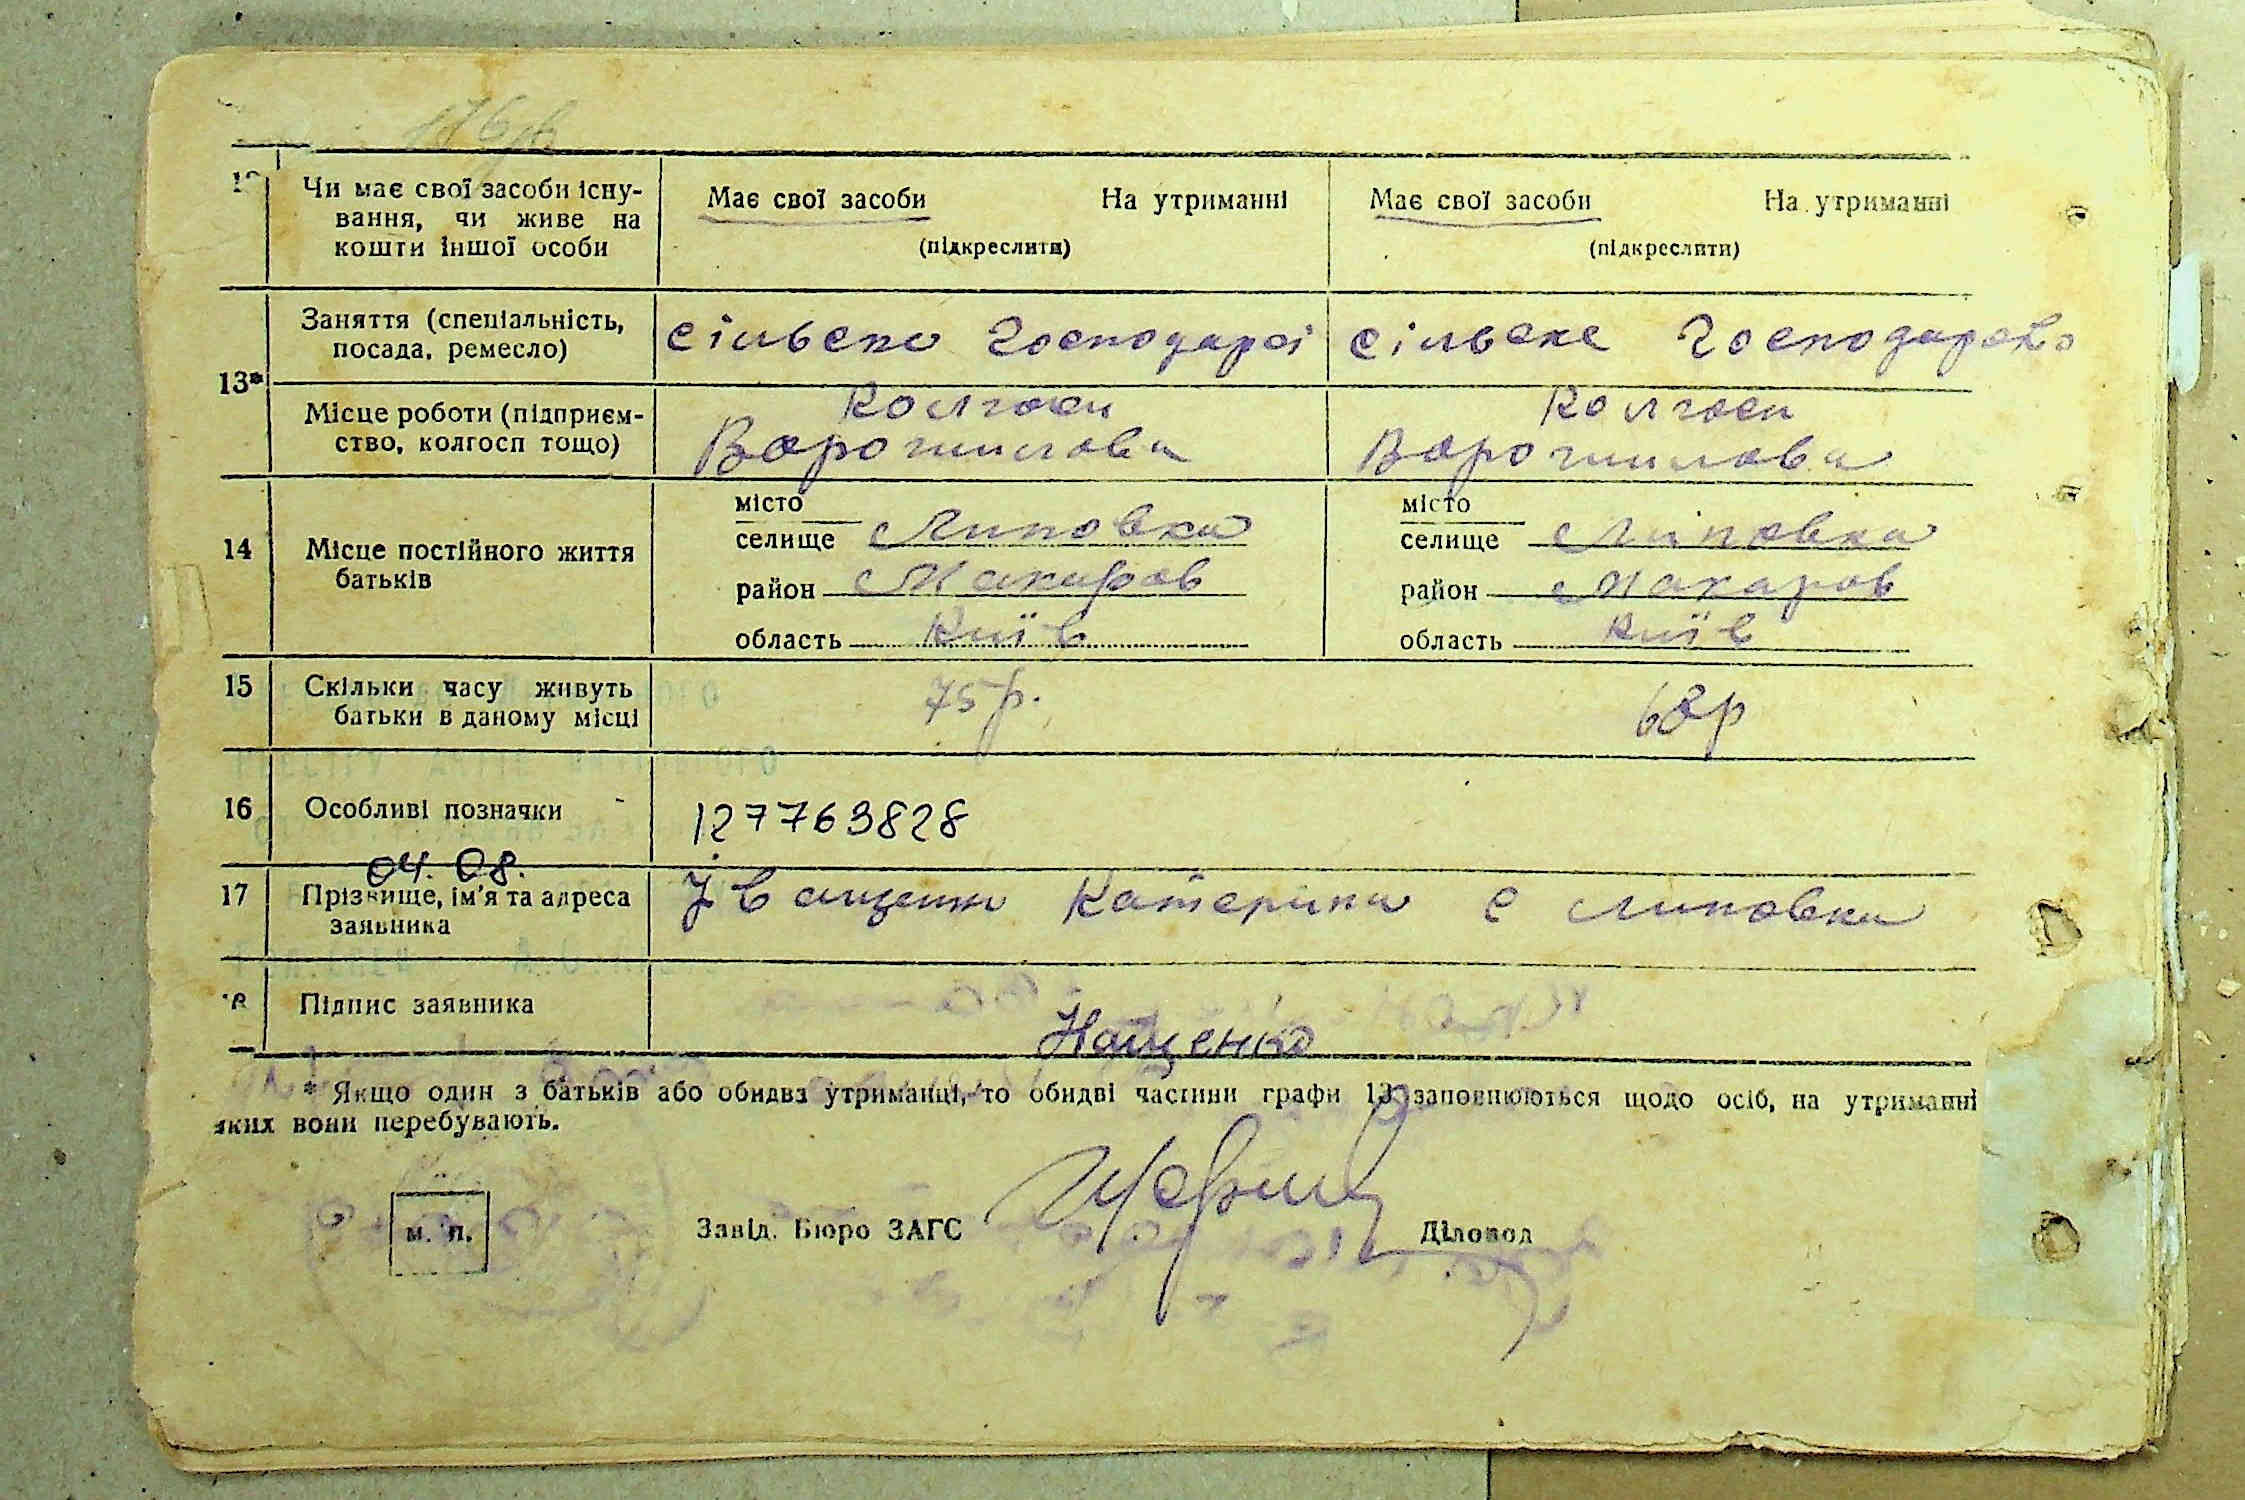 Чи має свої засоби існу- Має свої засоби На утриманні Має свої засоби На утриманні
вання, чи живе на
кошти іншої особи (підкреслити) (підкреслити)
13* Заняття (спеціальність, сільське господарст сільське господарство
посада, ремесло)
Місце роботи (підприєм- Колгосп Колгосп
ство, колгосп тощо) Ворошилова Ворошилова
14 Місце постійного життя батьків
місто місто
селище Липовка селище Липовка
район Макаров район Макаров
область Київ область Київ
15 Скільки часу живуть 75 р. 68 р
батьки в даному місці
16 Особливі позначки 127763828
04. 08.
17 Прізвище, ім'я та адреса Іващенко Катерина с Липовка
заявника
18 Підпис заявника
* Якщо один з батьків або обидва утриманці, то обидві частини графи 13 заповнюються щодо осіб, на утриманні
яких вони перебувають.
м. п. Завід. Бюро ЗАГС Діловод